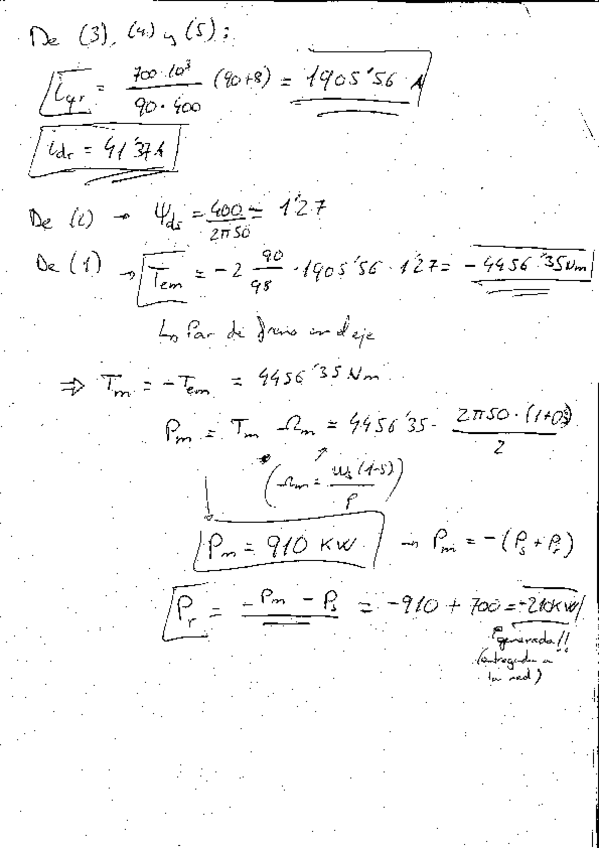 De (3), (4) y (5):
iqr = 700·10³ / 90·400 (90+8) = 1905'56 A
idr = 41'37A
De (2) → Ψds = 400 / 2π50 = 1'27
De (1) → Tem = -2 90/98 · 1905'56 · 1'27 = -4456'35 Nm
↳ Par de freno en el eje
⇒ Tm = -Tem = 4456'35 Nm
Pm = Tm · Ωm = 4456'35 · 2π50·(1+0'3) / 2
(Ωm = ωs(1-s) / P)
Pm = 910 KW → Pm = -(Ps + Pr)
Pr = -Pm - Ps = -910 + 700 = -210KW
generada!!
(entregada a
la red)